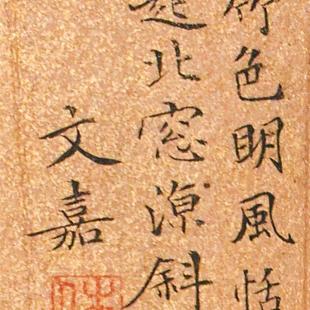 竹色明風恬
起北窓涼斜
文嘉